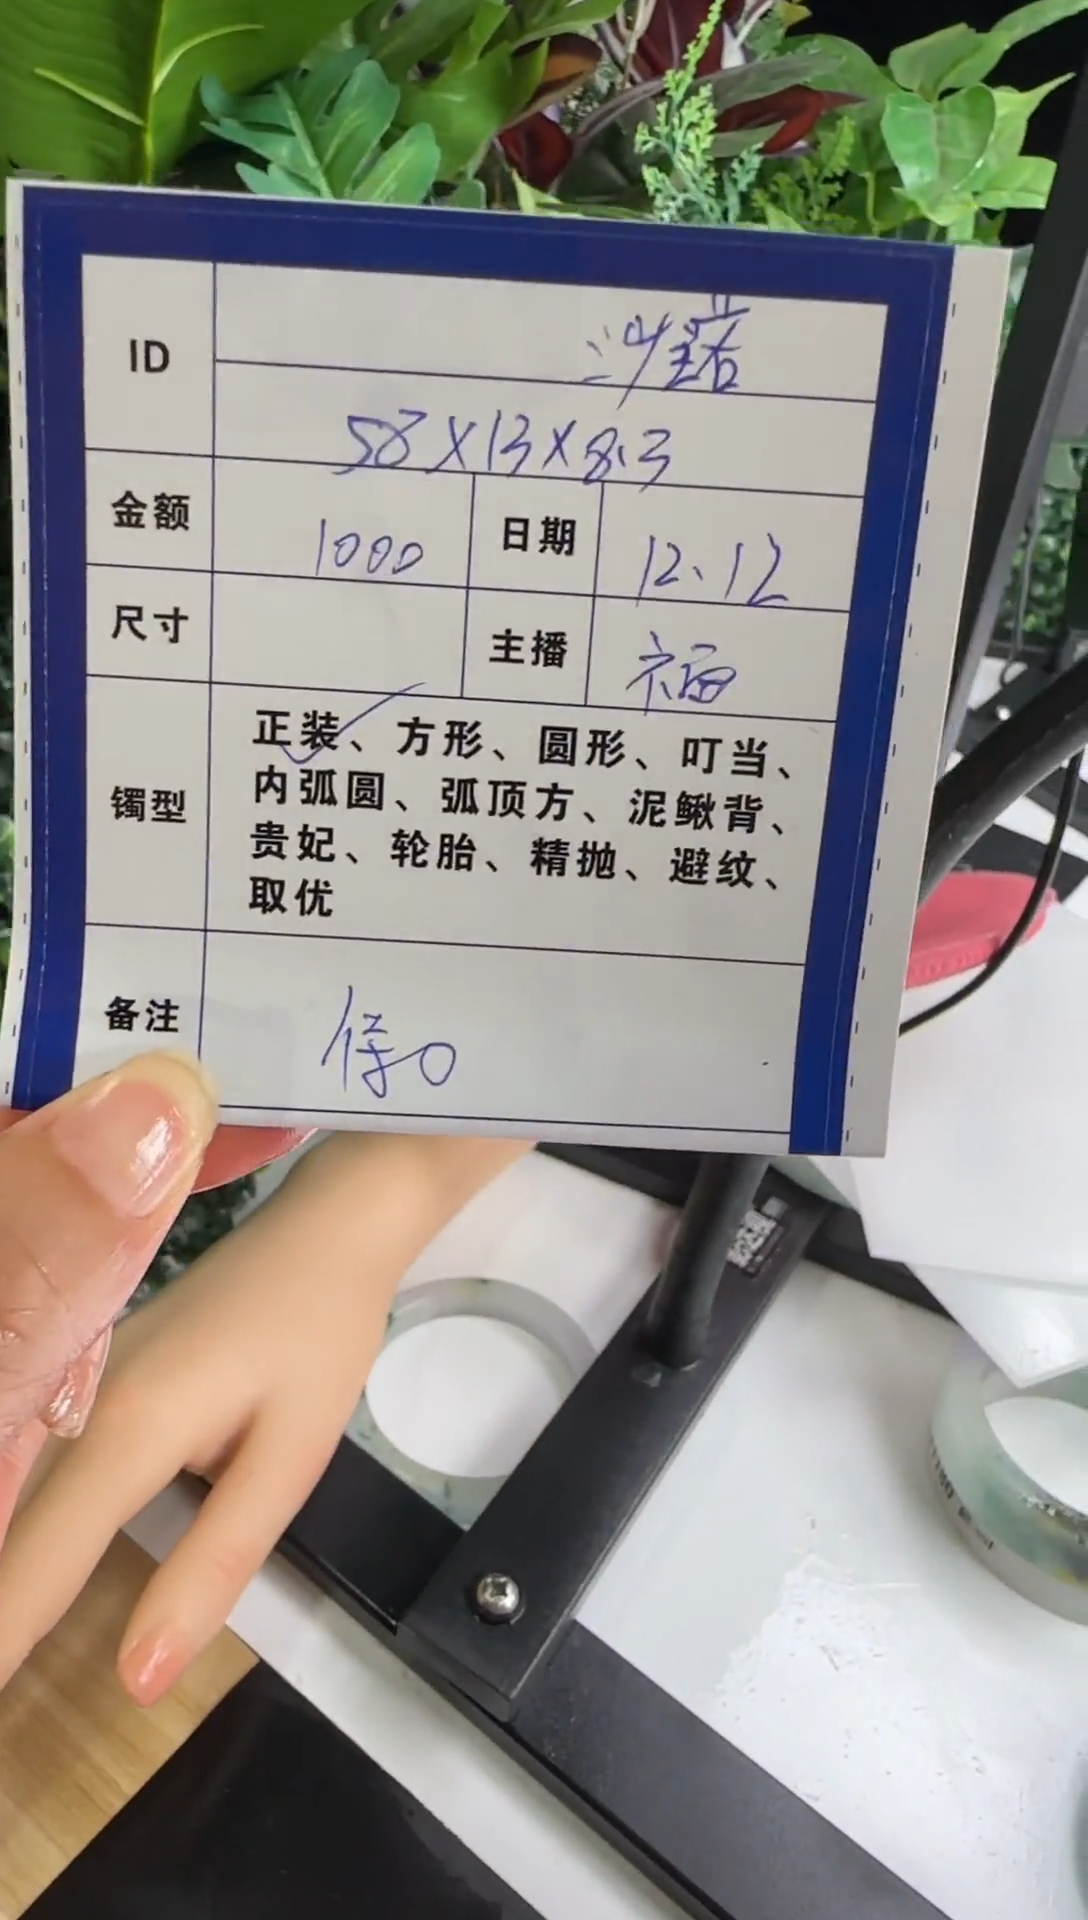 ID
58X13X8.3
金额 1000 日期 12.12
尺寸 主播 福
镯型 正装、方形、圆形、叮当、
内弧圆、弧顶方、泥鳅背、
贵妃、轮胎、精抛、避纹、
取优
备注